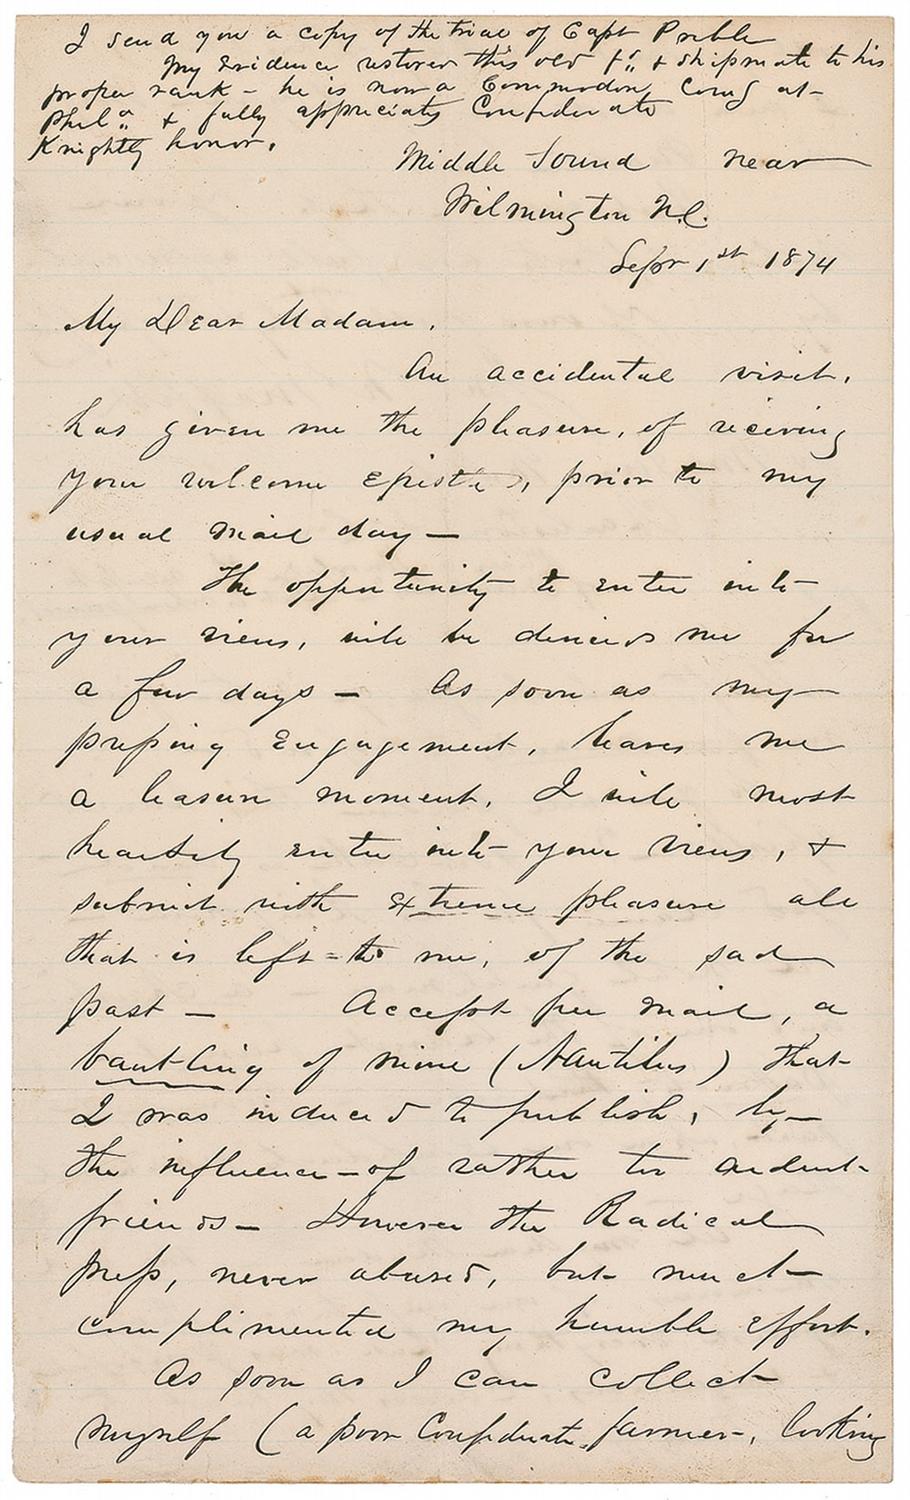 I send you a copy of the trial of Capt Preble
My Evidence restored this old fr. & shipmate to his
proper rank - he is now a Commodore Comg at
Phila & fully appreciates Confederate
Knightly honor.
Middle Sound near
Wilmington N.C.
Sepr 1st 1874
My Dear Madam,
An accidental visit,
has given me the pleasure, of receiving
your welcome Epistle, prior to my
usual mail day —
The opportunity to enter into
your views, will be denied me for
a few days — As soon as my
pressing Engagement, leaves me
a leasure moment, I will most
heartily enter into your views, &
submit with extreme pleasure all
that is left to me, of the sad
past — Accept per mail, a
bantling of mine (Nautilus) that
I was induced to publish, by
the influence of rather too ardent
friends — However the Radical
press, never abused, but much
complimented my humble effort.
As soon as I can collect
myself (a poor Confederate farmer, looking